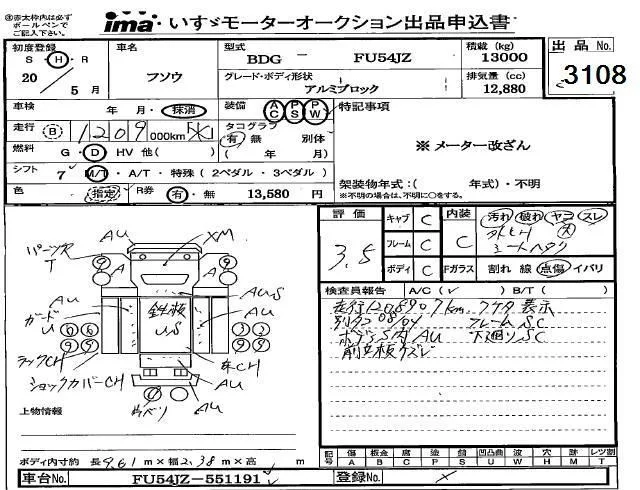 ㊟赤太枠内は必ず
ボールペンで
ご記入下さい。
ima いすゞモーターオークション出品申込書
初度登録 S・H・R 20 / 5 月
車名 フソウ
型式 BDG － FU54JZ
積載 (kg) 13000
出品 No. 3108
グレード・ボディ形状 アルミブロック
排気量 (cc) 12,880
車検 年 月・抹消
装備 AC PS PW
特記事項
走行 B 1209 000km
タコグラフ 有 無 別体
( 年 月)
※ メーター改ざん
燃料 G・D HV 他( )
シフト 7 M/T・A/T・特殊(2ペダル・3ペダル)
架装物年式:( 年式)・不明
※不明の場合は、不明に○をする。
色 指定 R券 有・無 13,580 円
評価 3.5
キャブ C
フレーム C
ボディ C
内装 C
汚れ 破れ ヤコ スレ
シートヘタリ
Fガラス 割れ 線 点傷 イバリ
検査員報告 A/C(✓) B/T( )
走行120,890.7km
フレームSC
ボデーS内AU 下廻りSC
パーツ欠 T
AU
XM
A
A
AU
AUS
ガードU
鉄板 US
AU
ラックCH
CH
ショックカバーCH
AU
AU
上物情報
ボディ内寸約 長9.61m×幅2.38m×高 m
記号 傷A 板金B 腐C 塗P 錆S 凹凸曲U 波W 穴H 無M レツ割T
車台No. FU54JZ-551191
登録No.